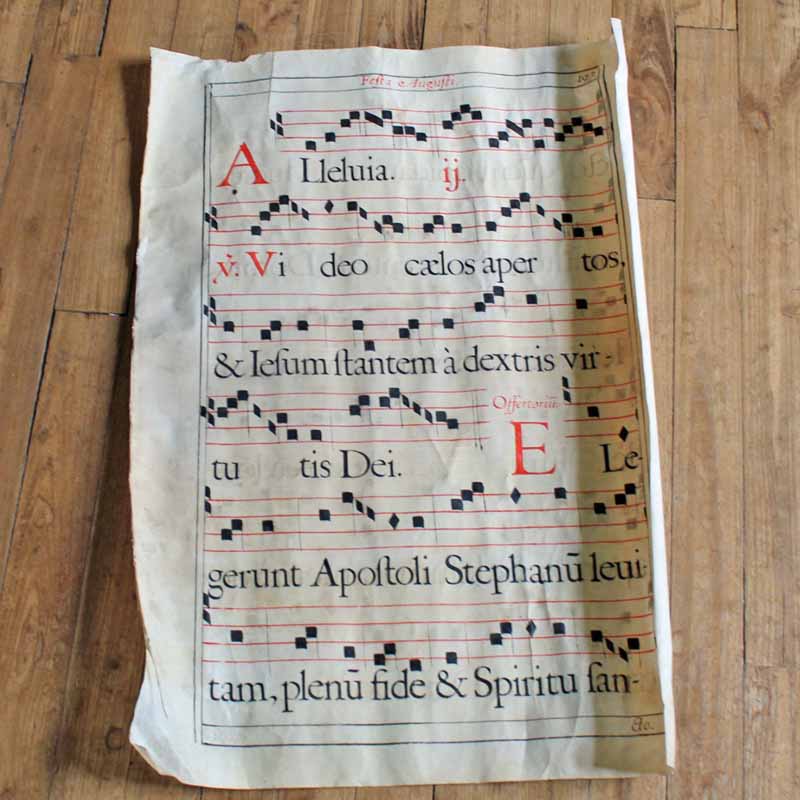 Festa Augusti.
Alleluia. ij.
℣. Vi deo cælos aper tos,
& Ieſum ſtantem à dextris vir-
tu tis Dei.
Offertoriū.
E Le-
gerunt Apoſtoli Stephanū leui-
tam, plenū fide & Spiritu ſan-
cto.